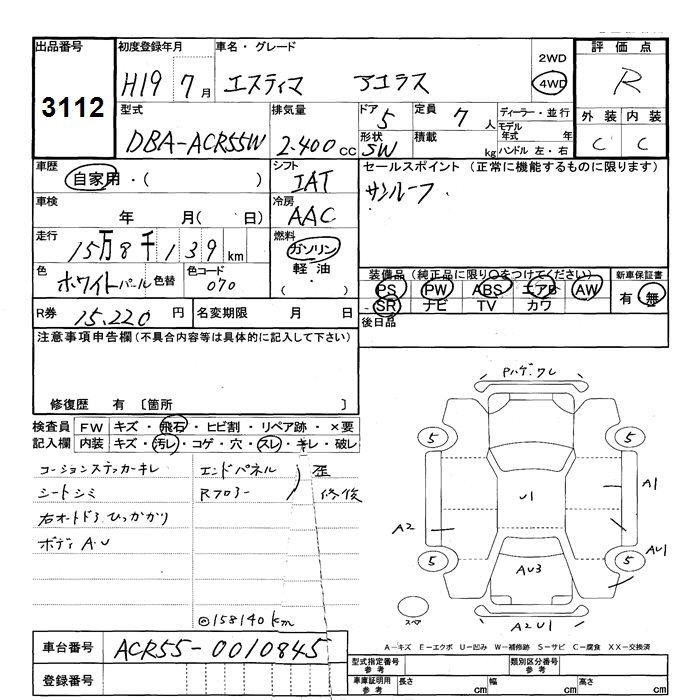 出品番号
3112
初度登録年月
H19 7月
車名・グレード
エスティマ アエラス
2WD
4WD
評価点
R
外装 内装
C C
型式
DBA-ACR55W
排気量
2.400cc
ドア
5
形状
SW
定員
7人
積載
kg
ディーラー・並行
モデル年式 年
ハンドル 左・右
車歴
自家用・( )
シフト
IAT
セールスポイント (正常に機能するものに限ります)
サンルーフ
車検
年 月( 日)
冷房
AAC
走行
15万8千139km
燃料
ガソリン
軽油
( ・ )
色
ホワイトパール
色替
色コード
070
装備品 (純正品に限り○をつけてください)
PS PW ABS エアB AW
SR ナビ TV カワ
新車保証書
有・無
R券 15.220円
名変期限 月 日
後日品
注意事項申告欄(不具合内容等は具体的に記入して下さい)
修復歴 有 〔箇所 〕
検査員
記入欄
FW キズ・飛石・ヒビ割・リペア跡・×要
内装 キズ・汚レ・コゲ・穴・スレ・キレ・破レ
コーションステッカーキレ
シートシミ
右オートドア ひっかかり
ボディ A・U
エンドパネル
Rフロアー
歪
修復
◎158140km
Pハゲ.ワレ
5 5
U1
A1
A2
AU1
5 5
AU3
スペア
A2U1
A-キズ E-エクボ U-凹み W-補修跡 S-サビ C-腐食 XX-交換済
車台番号
ACR55-0010845
登録番号
型式指定番号
参考
類別区分番号
参考
車庫証明用
参考
長さ cm
幅 cm
高さ cm